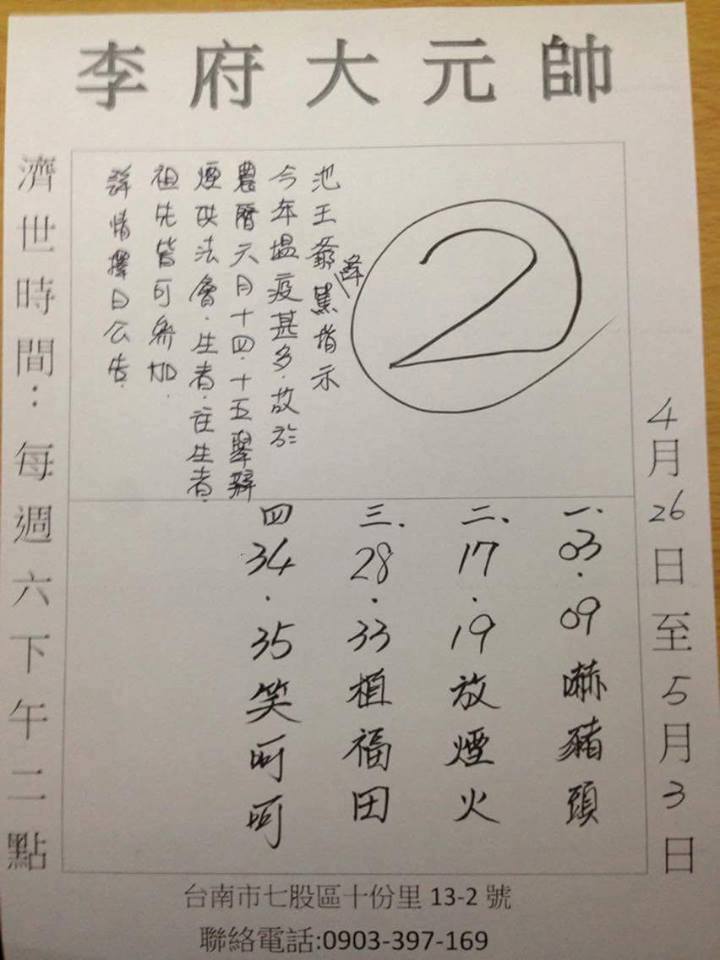 李府大元帥
4月26日至5月3日
2
池王爺降駕指示
今年瘟疫甚多.故於
農曆六月十四.十五舉辦
煙供法會.生者.往生者.
祖先皆可參加.
詳情擇日公告.
一.03.09嚇豬頭
二、17.19放煙火
三.28.33植福田
四34.35笑呵呵
濟世時間:每週六下午二點
台南市七股區十份里13-2號
聯絡電話:0903-397-169